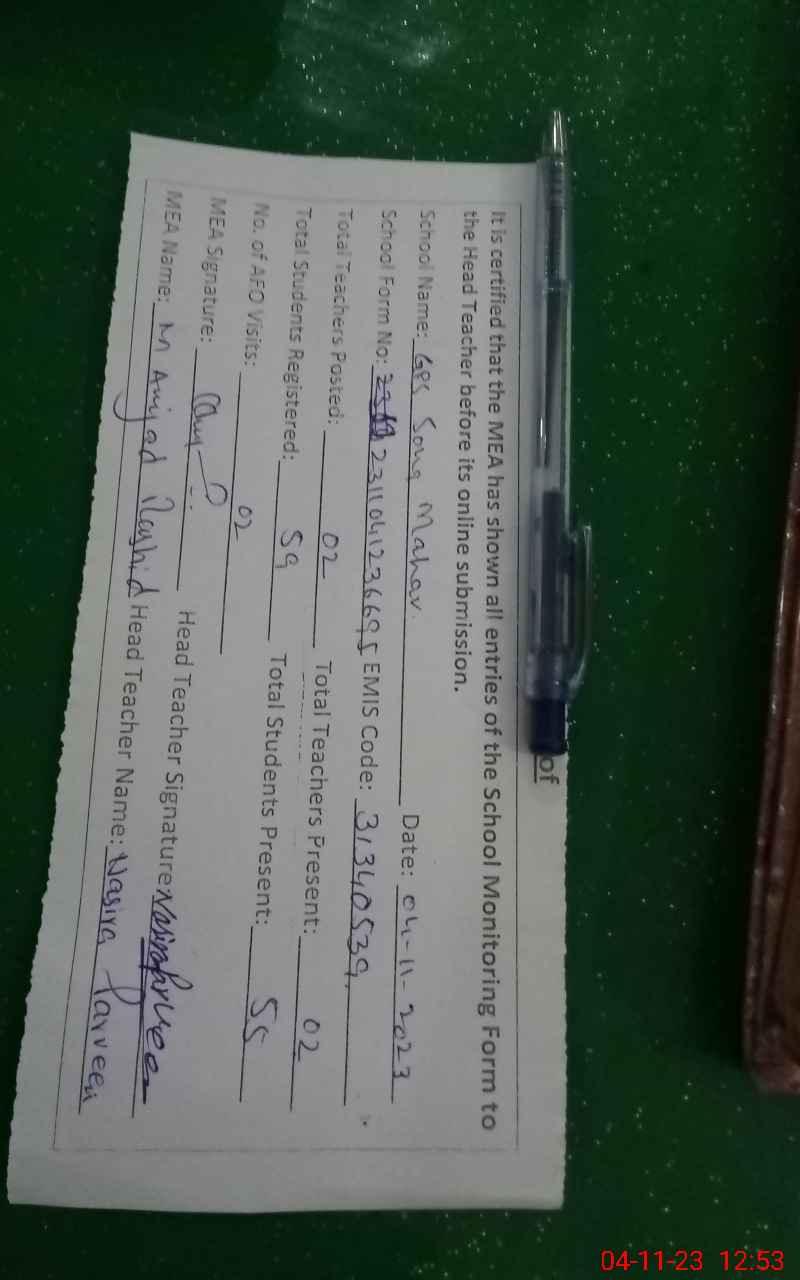 of
It is certified that the MEA has shown all entries of the School Monitoring Form to
the Head Teacher before its online submission.
School Name: GPS Song Mahar Date: 04-11-2023
School Form No: 2311041236695 EMIS Code: 31340539
Total Teachers Posted: 02 Total Teachers Present: 02
Total Students Registered: 59 Total Students Present: 55
No. of AFO Visits: 02
MEA Signature: Head Teacher Signature:
MEA Name: M Amjad Rashid Head Teacher Name: Nasira Parveen
04-11-23 12:53